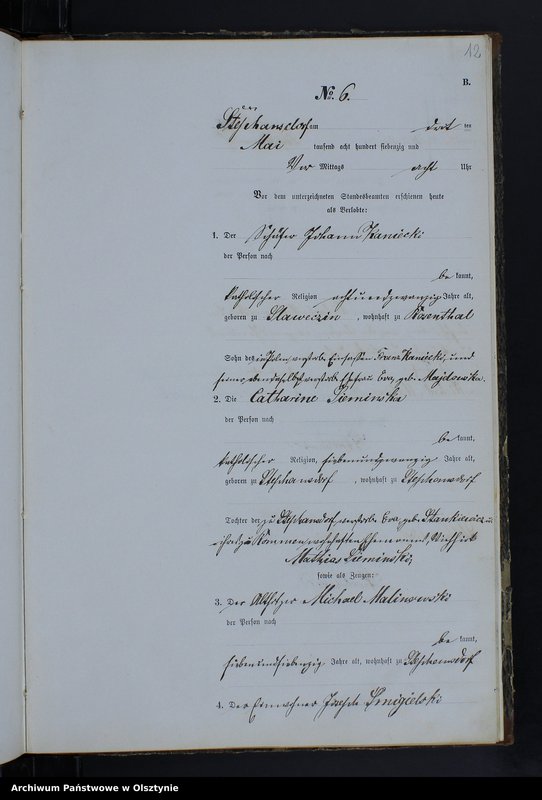 12
B.
No. 6.
Stephansdorf am drit ten
Mai tausend acht hundert siebenzig und
Vor Mittags acht Uhr
Vor dem unterzeichneten Standesbeamten erschienen heute
als Verlobte:
1. Der Schäfer Johann Kaniecki
der Person nach
be kannt,
katholischer Religion achtundzwanzig Jahre alt,
geboren zu Slawęczin, wohnhaft zu Rosenthal
Sohn des in Polen verstorb. Einsassen Franz Kaniecki, und
seiner ebendaselbst verstorb. Ehefrau Eva, geb. Majdowska.
2. Die Catharine Sieminska
der Person nach
be kannt,
katholischer Religion, siebenundzwanzig Jahre alt,
geboren zu Stephansdorf, wohnhaft zu Stephansdorf
Tochter der zu Stephansdorf verstorb. Eva, geb. Stankiewicz u.
Mathias Sieminski,
sowie als Zeugen:
3. Der Altsitzer Michael Malinowski
der Person nach
be kannt,
siebenundsiebenzig Jahre alt, wohnhaft zu Stephansdorf
4. Der Einwohner Joseph Smigielski
Archiwum Państwowe w Olsztynie